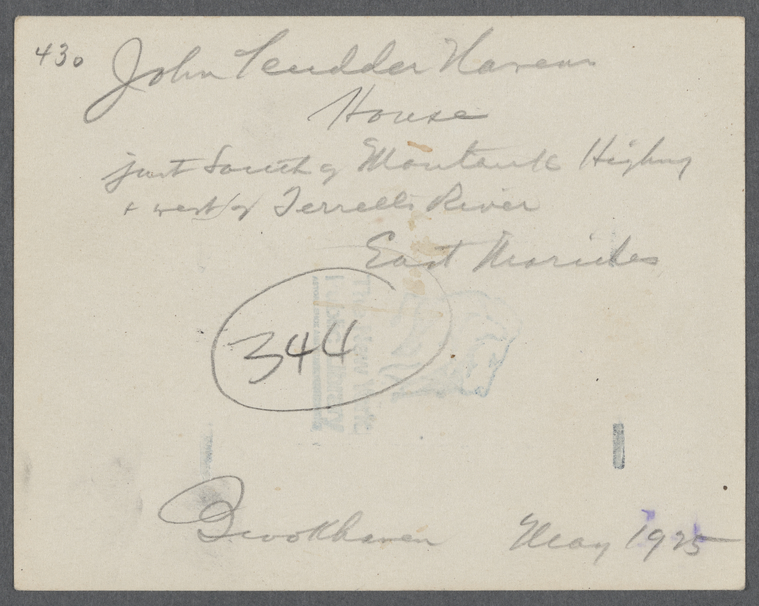 430
John Scudder Havens
House
just South of Montauk Highway
+ west of Terrells River
East Moriches
344
Brookhaven May 1925